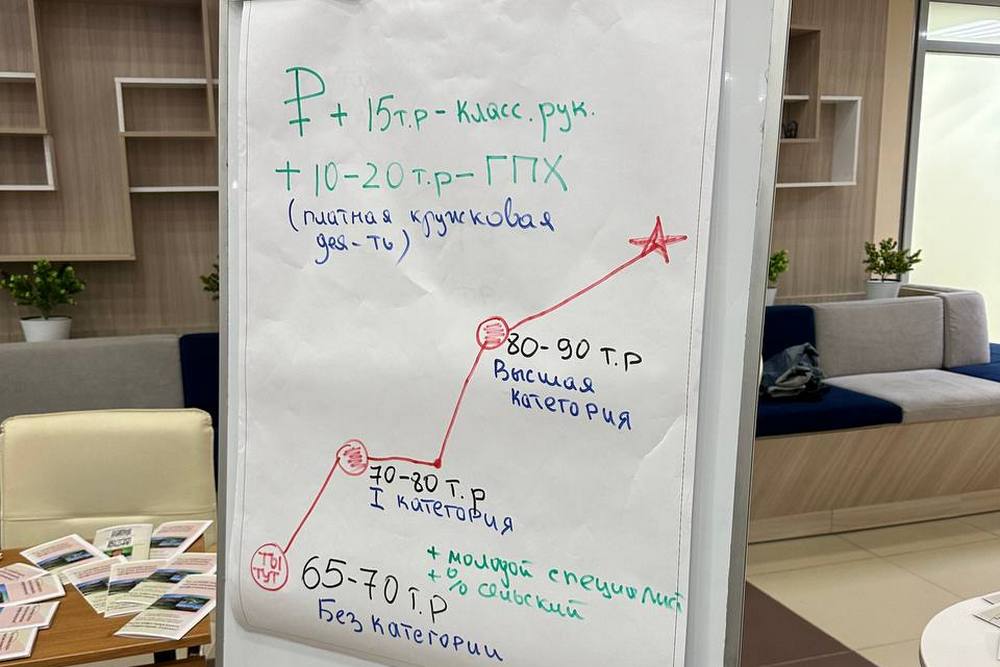 ₽ + 15т.р - класс. рук.
+ 10-20 т.р - ГПХ
(платная кружковая
дея-ть)
80-90 т.р
Высшая
категория
70-80 т.р
I категория
ТЫ
ТУТ
65-70 т.р
Без категории
+ молодой специалист
+ % сельский